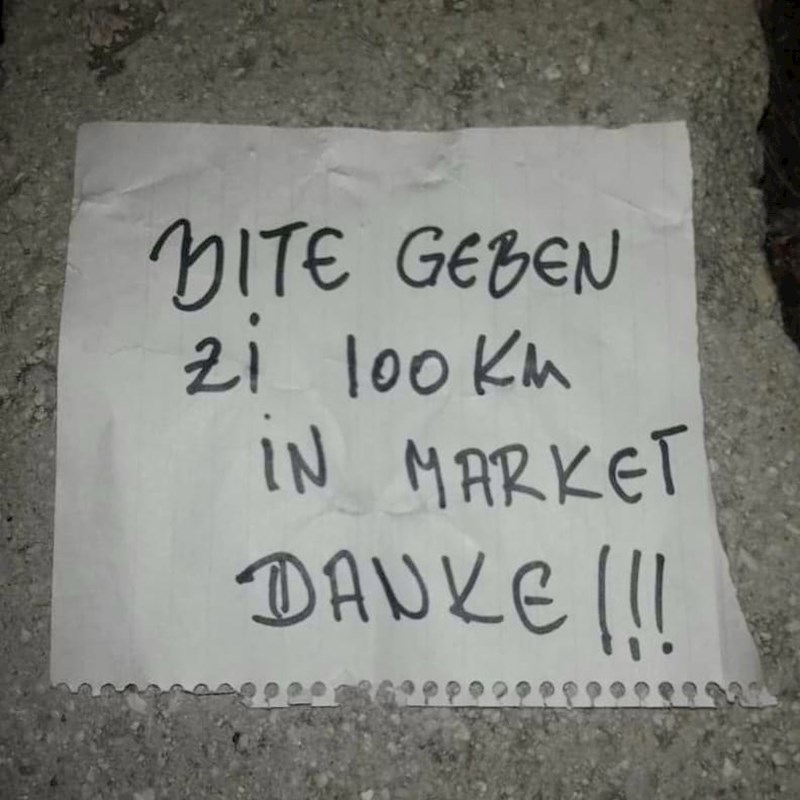 BITE GEBEN
Zi 100 KM
iN MARKET
DANKE!!!